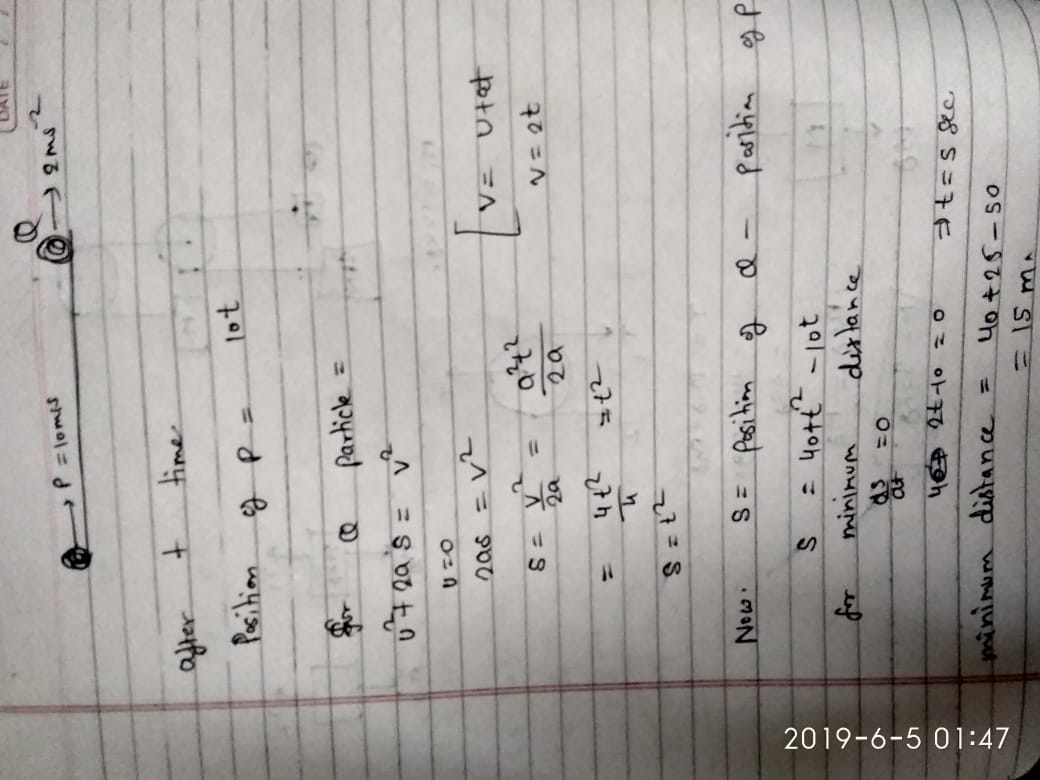 DATE
P → P = 10m/s Q → 2 ms⁻²
after t time
Position of P = 10t
for Q particle =
u² + 2aS = v²
u=0
2as = v² [ V = U+at
S = v²/2a = a²t²/2a V = 2t
= 4t²/4 = t²
S = t²
Now. S = Position of Q - Position of P
S = 40+t² - 10t
for minimum distance
ds/dt = 0
2t-10 = 0 ⇒ t = 5 sec.
minimum distance = 40+25-50
= 15 m.
2019-6-5 01:47